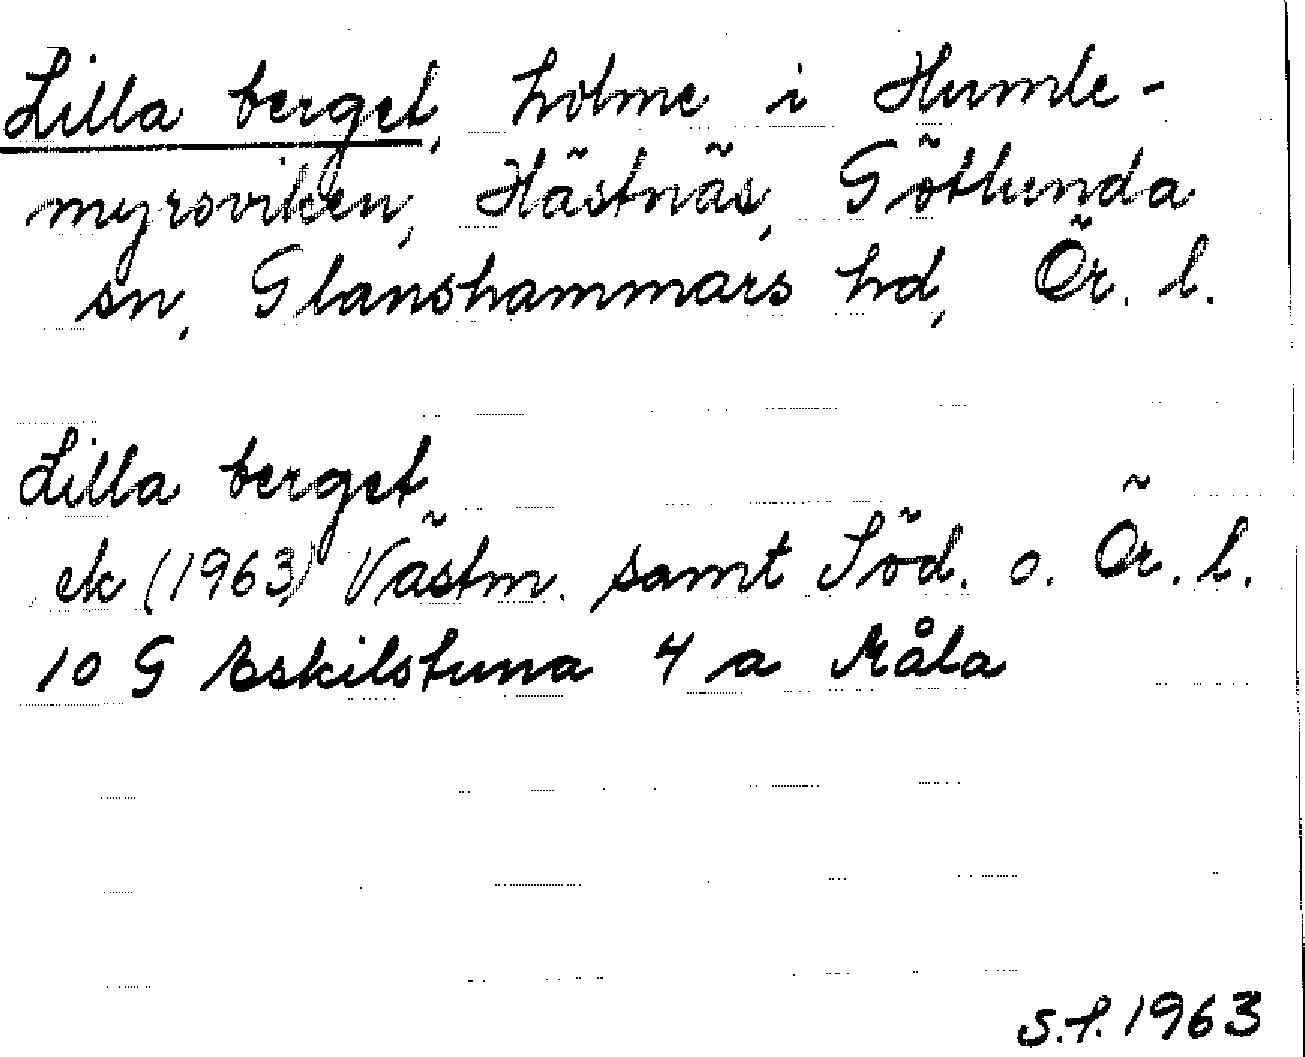 Lilla berget, holme i Humle-
myrsviken, Hästnäs, Götlunda
sn, Glanshammars hd, Ör. l.
Lilla berget
ek (1963) Västm. samt Söd. o. Ör. l.
10 G Eskilstuna 4 a Måla
S.F. 1963